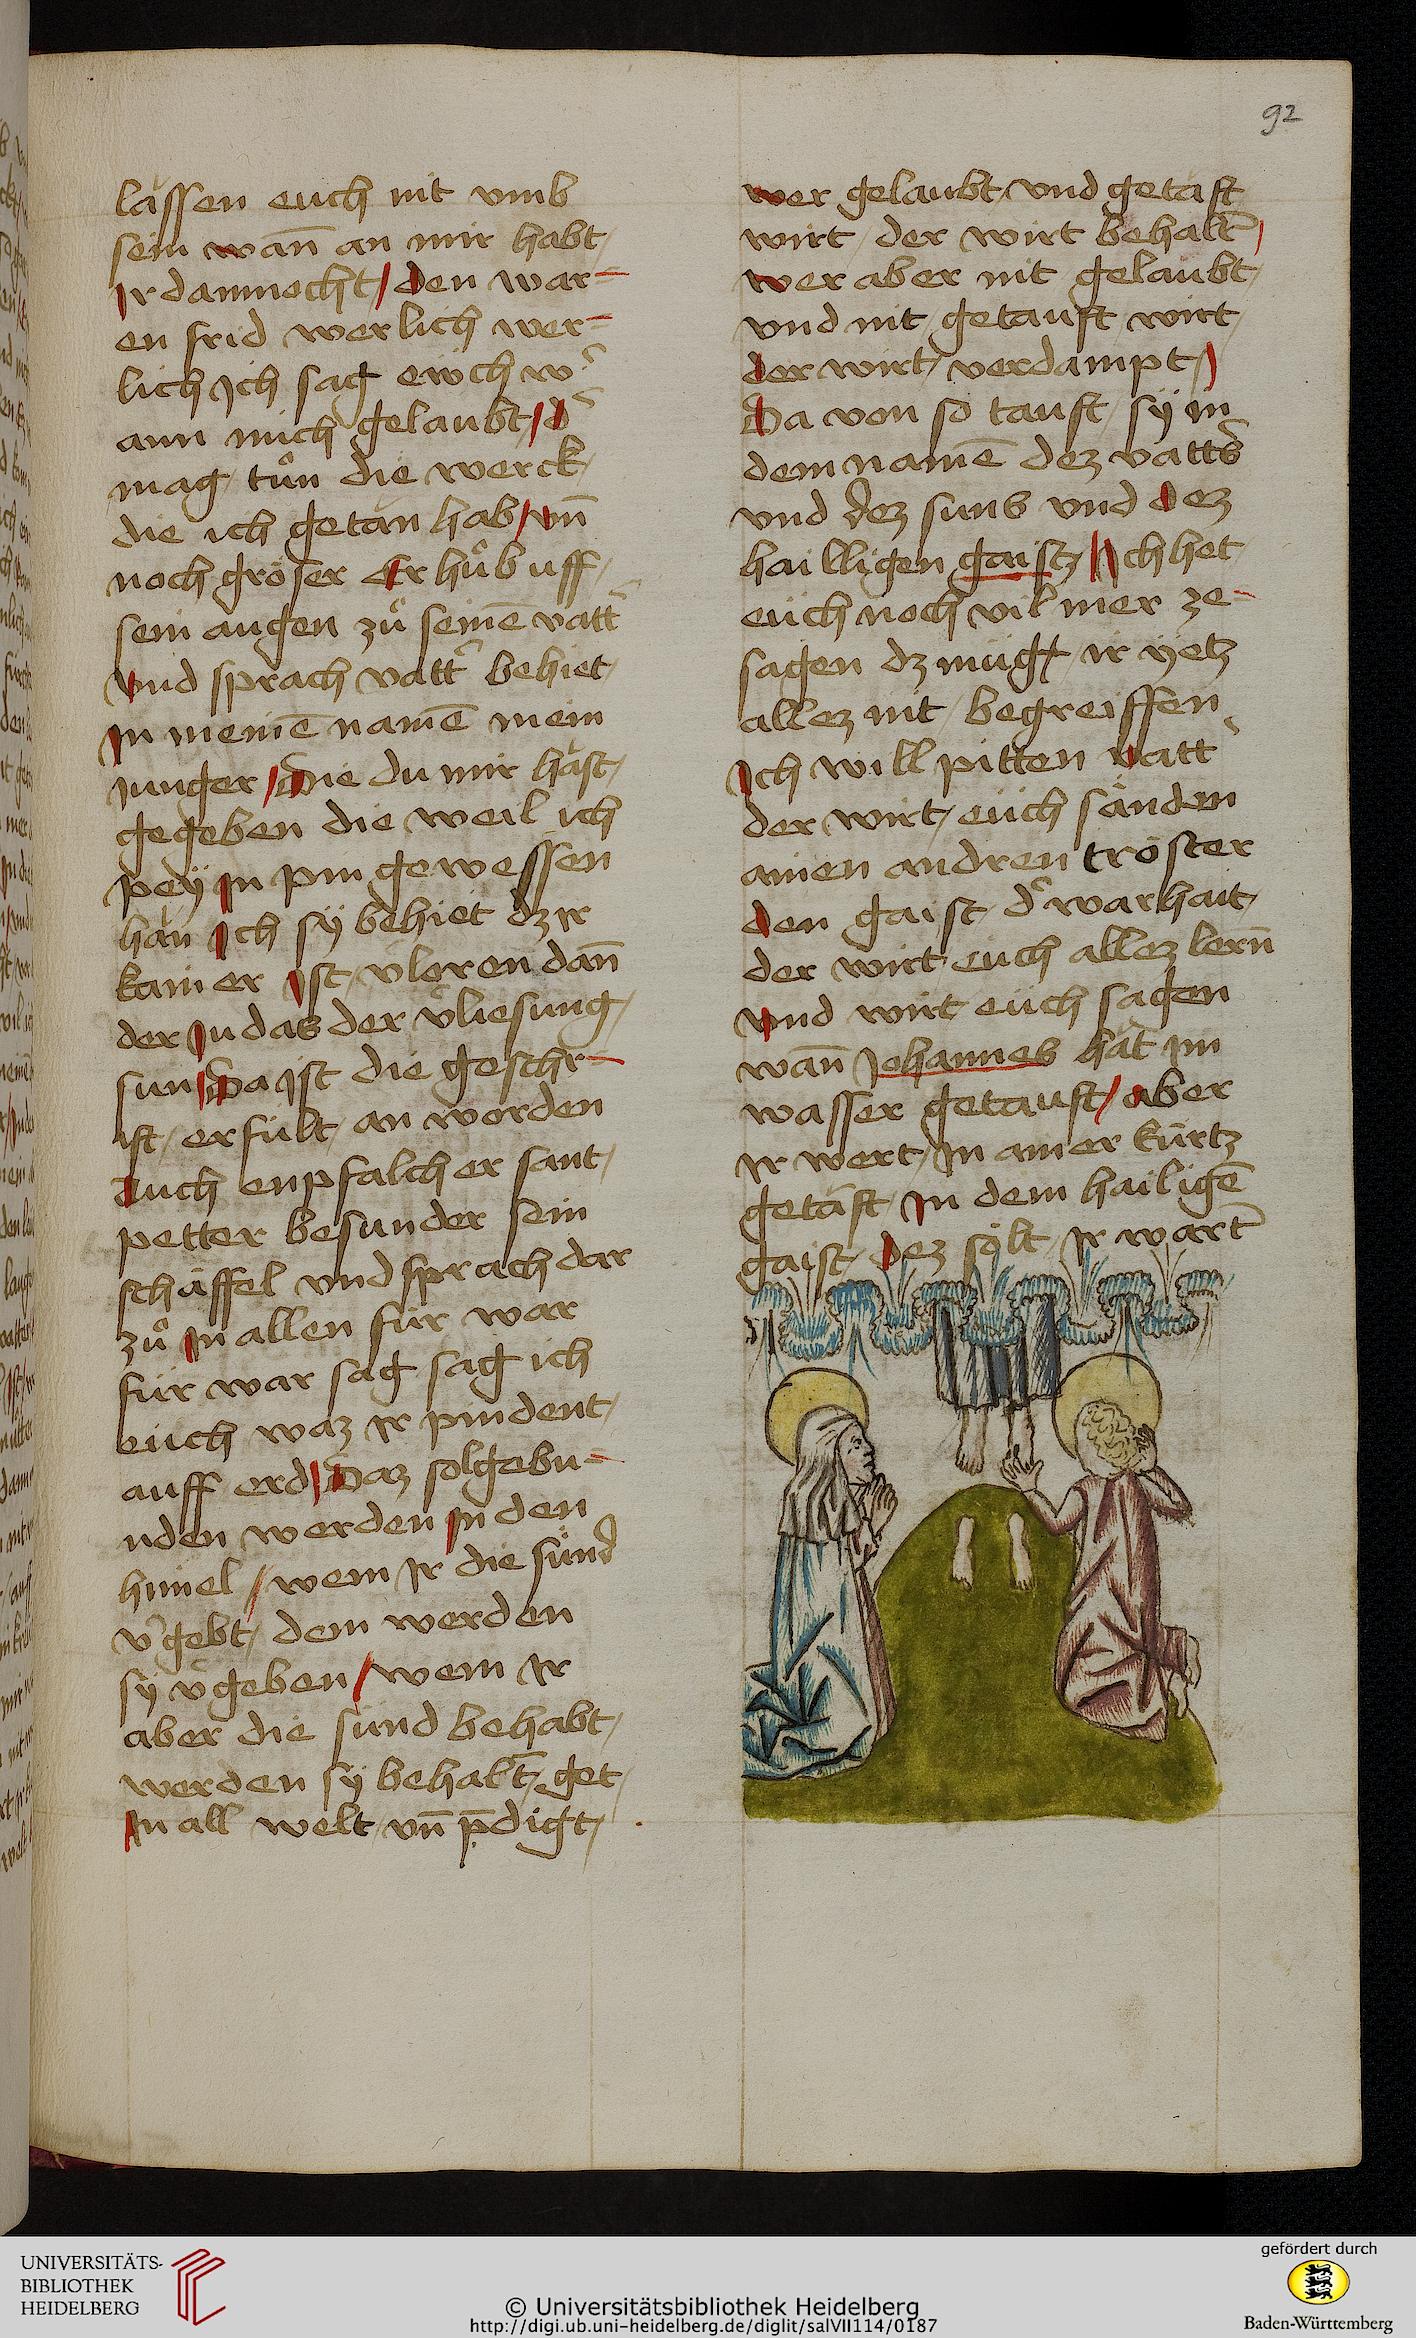 92
lăssen euch nit vmb
sein wañ an mir habt
Ir dannocht / den war=
en frid werlich wer=
lich Ich sag ewch w᷑
ann mich gelaubt / d᷑
mag tůn die werck
die ich getăn hab / vñ
noch gröser Er hůb uff
sein augen zů seinē vatt᷑
vnd sprach vatt᷑ behiet
In meinē namē mein
Junger / die du mir hăst
gegeben die weil ich
peÿ In pin gewessen
hăn Ich sÿ behiet dz Ir
kainer Ist v᷑loren dañ
der Judas der v᷑liesung
sun / Da Ist die geschr=
ift erfült an worden
Auch enpfalch er sant
petter besunder sein
schäffel vnd sprach dar
zů In allen für war
für war sag sag ich
euch waz Ir pindent
auff erd / Daz sol gebu=
nden werden In den
himel / wem Ir die sünd᷑
v᷑gebt dem werden
sÿ v᷑geben / wem Ir
aber die sünd behabt
werden sÿ behaltē get
In all welt vñ p̄digt
wer gelaubt vnd getăft
wirt der wirt behaltē /
wer aber nit gelaubt
vnd nit getauft wirt
der wirt verdampt /
Da von so tauft sÿ in
dem namē dez vatt᷑s
vnd dez suns vnd dez
hailligen gaistz / Ich het
eüch noch vil mer ze=
sagen dz mügt ir ÿetz
allez nit begreiffen
Ich will pitten vatt᷑
der wirt eüch sänden
ainen andren tröster
den gaist d᷑ warhait
der wirt euch allez lerñ
vnd wirt eüch sagen
wañ Johannes hăt im
wasser getauft / aber
Ir wert In ainer kürtz
getăft In dem hailigē
gaist dez sölt Ir wartē
UNIVERSITÄTS-
BIBLIOTHEK
HEIDELBERG
© Universitätsbibliothek Heidelberg
http://digi.ub.uni-heidelberg.de/diglit/salVII114/0187
gefördert durch
Baden-Württemberg